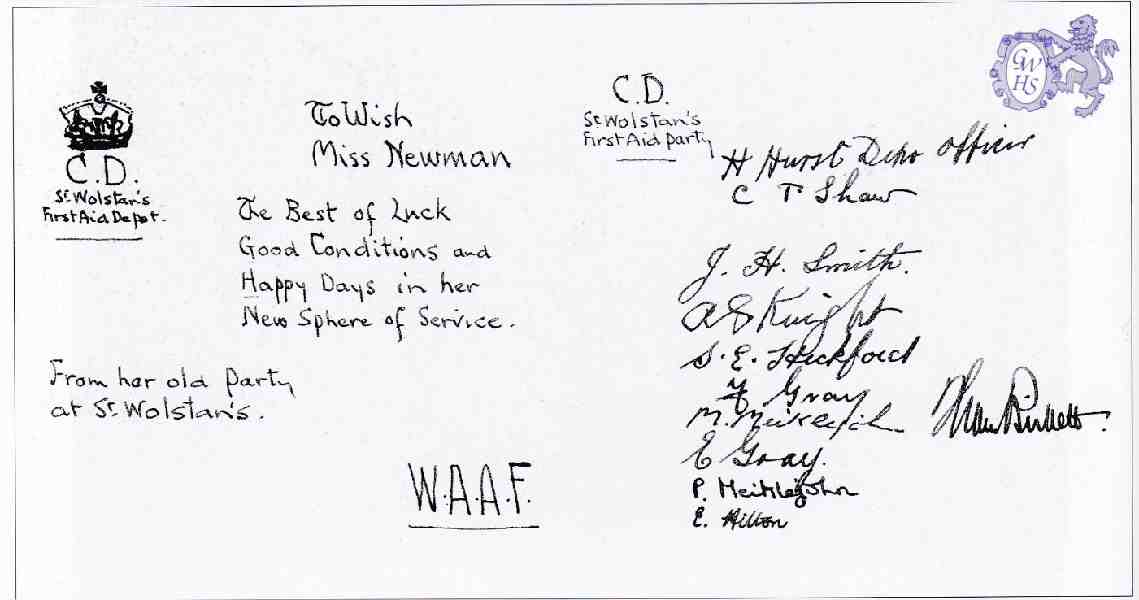 C.D.
St. Wolstan's
First Aid Depot.
To Wish
Miss Newman
The Best of Luck
Good Conditions and
Happy Days in her
New Sphere of Service.
From her old party
at St. Wolstan's.
W.A.A.F.
C.D.
St. Wolstan's
First Aid Party
GW
HS
H Hurst Depo Officer
C T Shaw
J. H. Smith.
A S Knight
S. E. Huckford
Gray
M.
E Gray.
P. Meiklejohn
E. Hilton